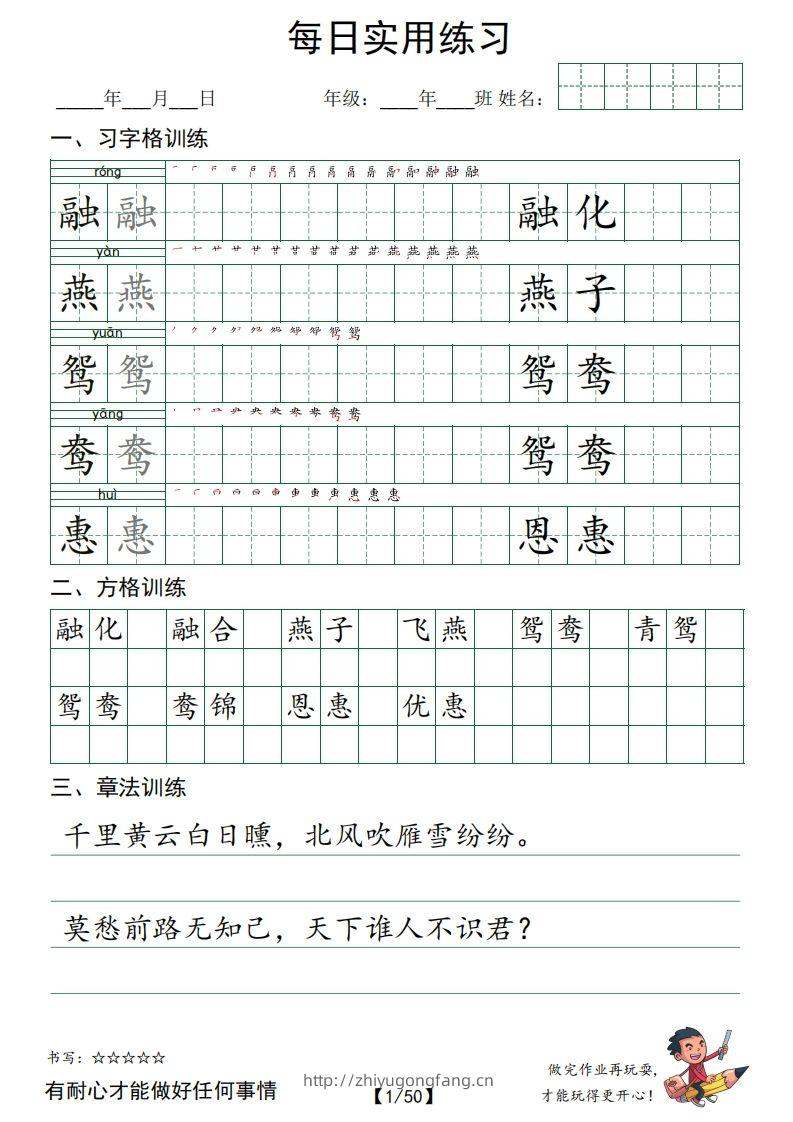 每日实用练习
_____年___月___日 年级：____年____班 姓名：
一、习字格训练
róng
融 融 融 化
yàn
燕 燕 燕 子
yuān
鸳 鸳 鸳 鸯
yāng
鸯 鸯 鸳 鸯
huì
惠 惠 恩 惠
二、方格训练
融化 融合 燕子 飞燕 鸳鸯 青鸳
鸳鸯 鸯锦 恩惠 优惠
三、章法训练
千里黄云白日曛，北风吹雁雪纷纷。
莫愁前路无知己，天下谁人不识君？
书写：☆☆☆☆☆
有耐心才能做好任何事情
http://zhiyugongfang.cn
【1/50】
做完作业再玩耍，
才能玩得更开心！